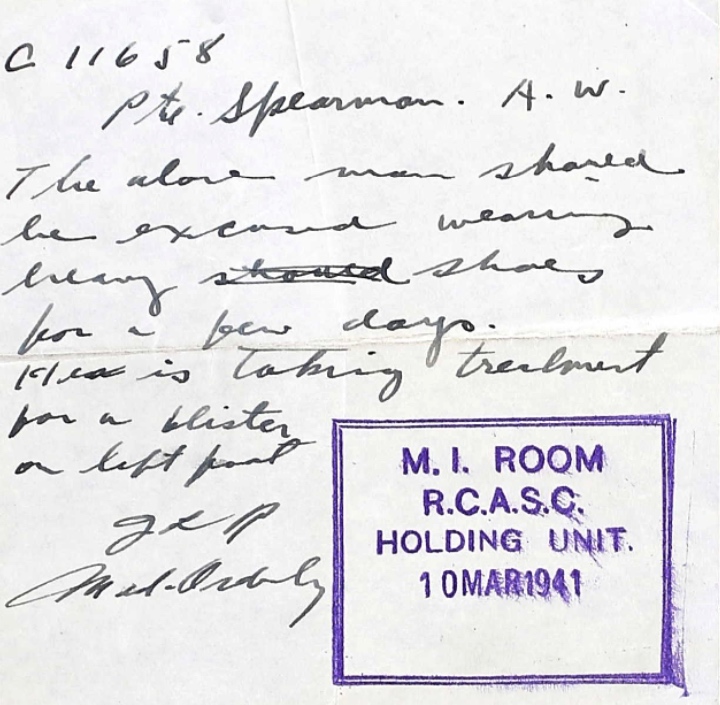 C 11658
Pte. Spearman. A. W.
The above man should
be excused wearing
heavy shoes
for a few days.
He is taking treatment
for a blister
on left foot
Med. Orderly
M. I. ROOM
R.C.A.S.C.
HOLDING UNIT.
10 MAR 1941